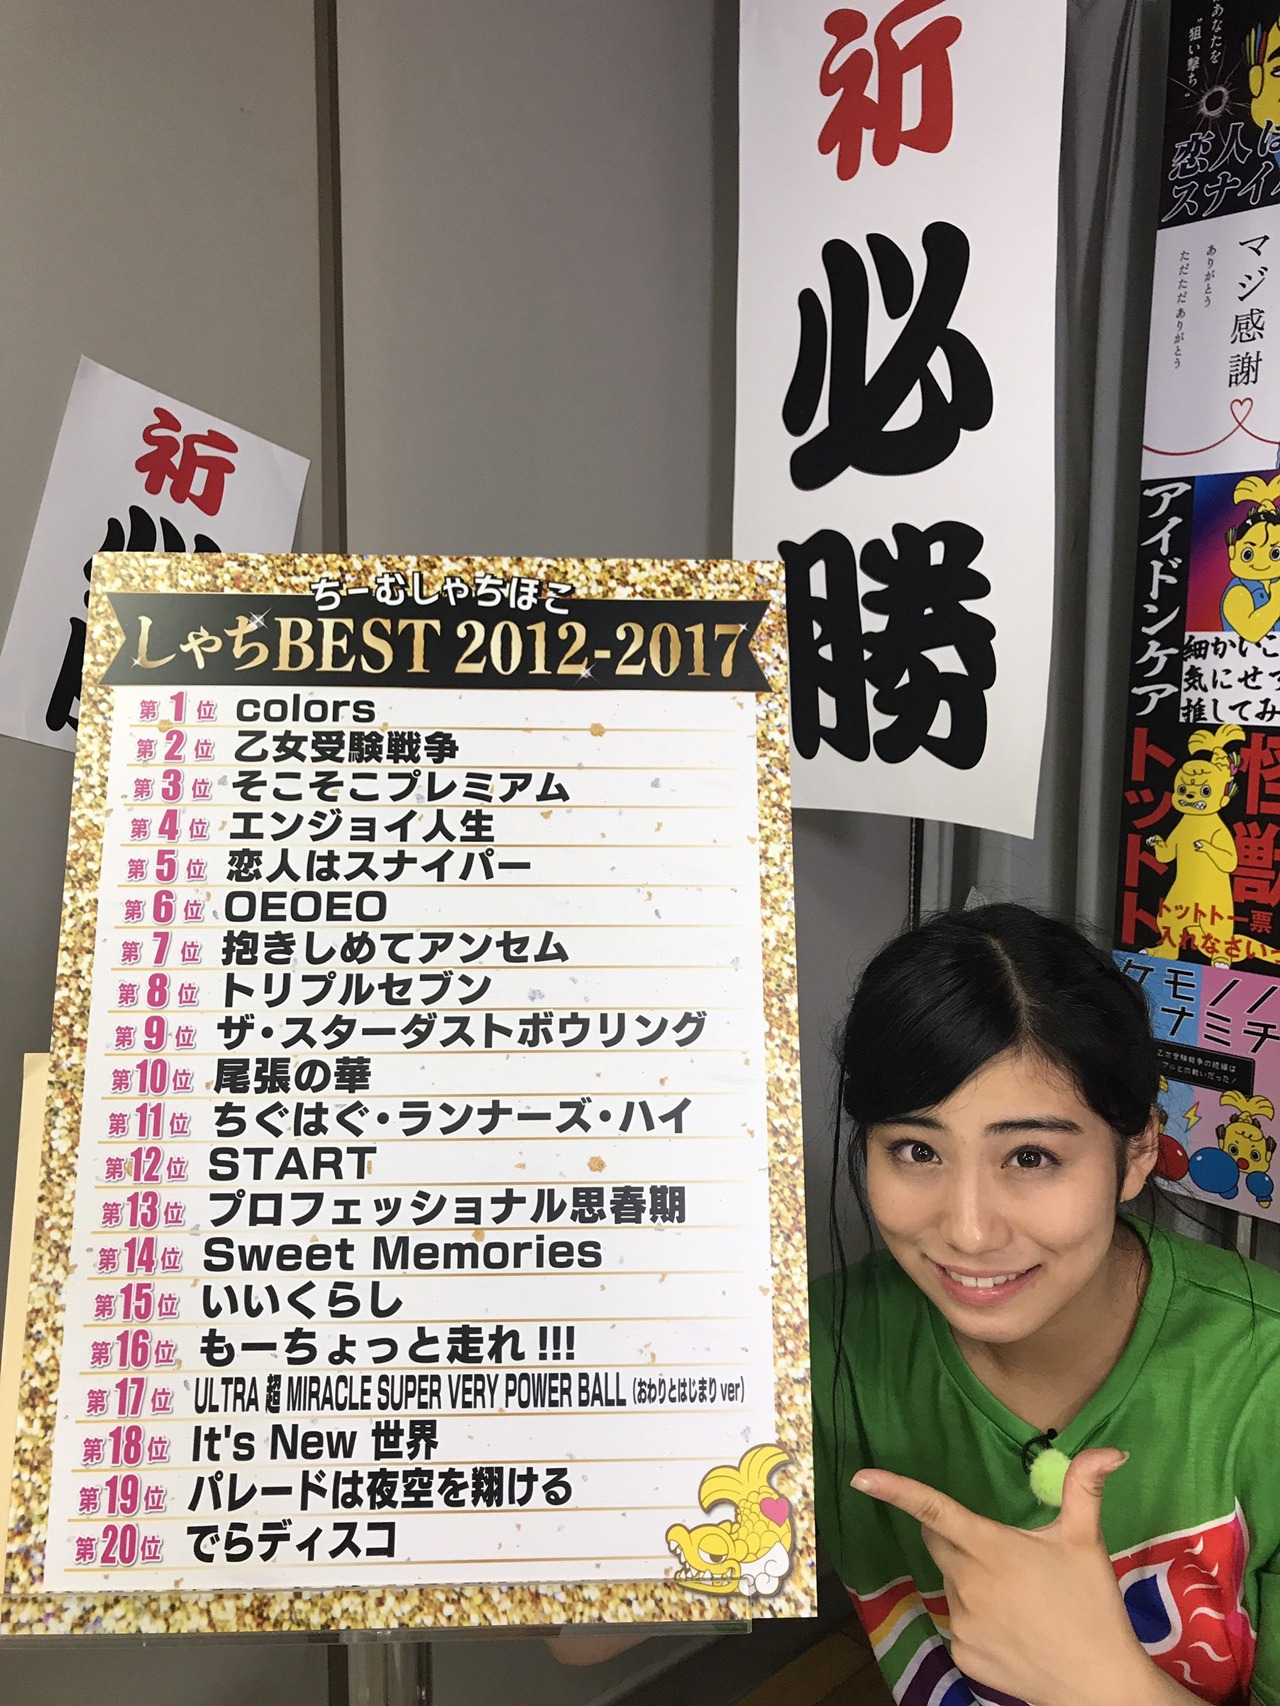 祈
必
勝
祈
ちーむしゃちほこ
しゃちBEST 2012-2017
第1位 colors
第2位 乙女受験戦争
第3位 そこそこプレミアム
第4位 エンジョイ人生
第5位 恋人はスナイパー
第6位 OEOEO
第7位 抱きしめてアンセム
第8位 トリプルセブン
第9位 ザ・スターダストボウリング
第10位 尾張の華
第11位 ちぐはぐ・ランナーズ・ハイ
第12位 START
第13位 プロフェッショナル思春期
第14位 Sweet Memories
第15位 いいくらし
第16位 もーちょっと走れ!!!
第17位 ULTRA 超 MIRACLE SUPER VERY POWER BALL (おわりとはじまりver)
第18位 It's New 世界
第19位 パレードは夜空を翔ける
第20位 でらディスコ
あなたを
"狙い撃ち"
恋人は
スナイ
マジ感謝
ありがとう
ただただありがとう
アイドンケア
細かいこ
気にせず
推してみ
怪獣
トットト
トットト一票
入れなさいっ
ケモノノ
ナミチ
乙女受験戦争の続編は
アルとの戦いだった!